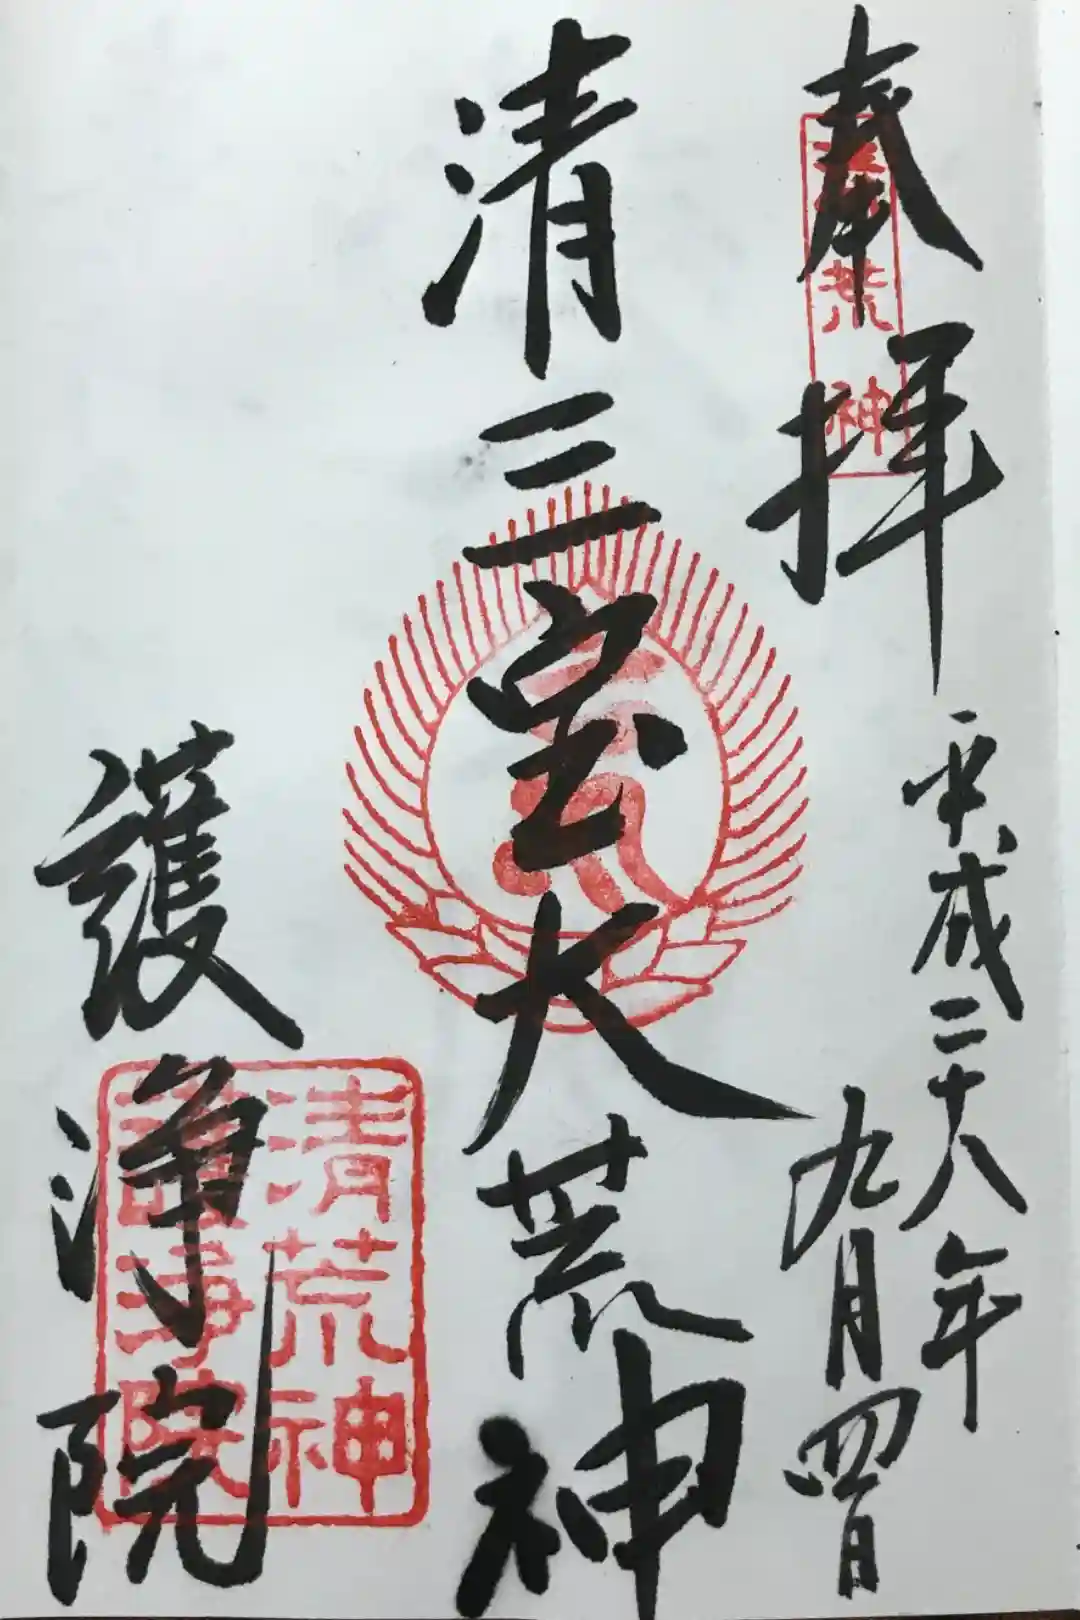 奉拝
平成二十八年
九月四日
清三宝大荒神
護浄院
荒神
清荒神
護浄院